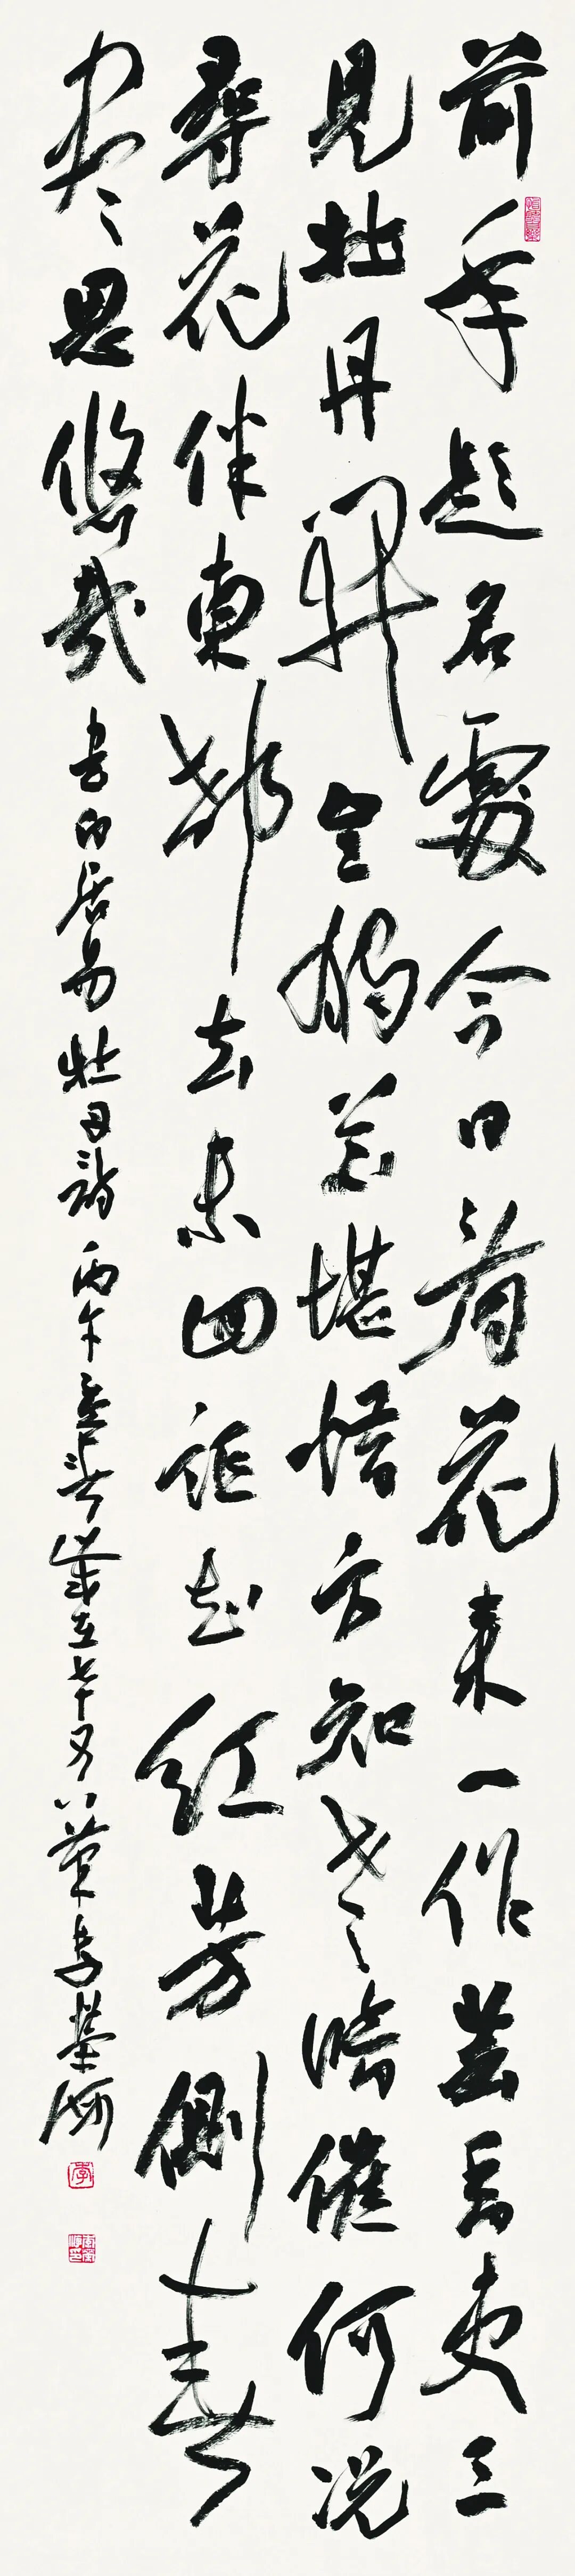 前年題名處今日看花來一作芸香吏三
見牡丹開豈獨花堪惜方知老暗催何況
尋花伴東都去未回詎知紅芳側春
盡思悠哉 書白居易牡丹詩 丙午 歲 七十又八 李